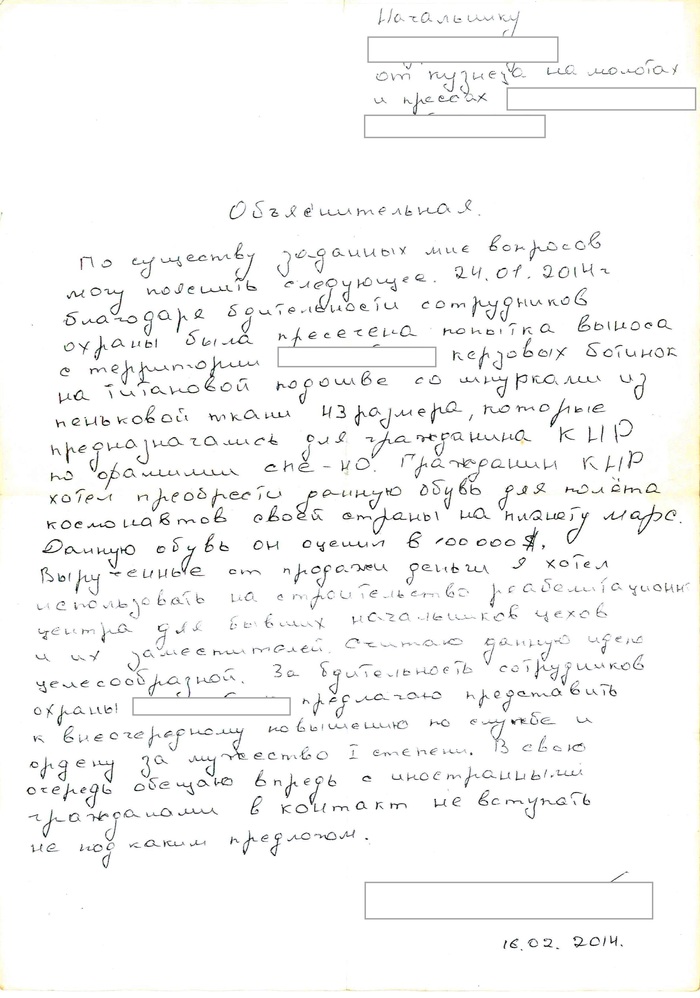 Начальнику
от кузнеца на молотах
и прессах
Объяснительная.
По существу заданных мне вопросов
могу пояснить следующее. 24.01.2014г
благодаря бдительности сотрудников
охраны была пресечена попытка выноса
с территории керзовых ботинок
на титановой подошве со шнурками из
пеньковой ткани 43 размера, которые
предназначались для гражданина КНР
по фамилии сне-но. Гражданин КНР
хотел преобрести данную обувь для полёта
космонавтов своей страны на планету марс.
Данную обувь он оценил в 100000$.
Вырученные от продажи деньги я хотел
использовать на строительство реабелитационн
центра для бывших начальников цехов
и их заместителей. Считаю данную идею
целесообразной. За бдительность сотрудников
охраны предлагаю представить
к внеочередному повышению по службе и
ордену за мужество I степени. В свою
очередь обещаю впредь с иностранными
гражданами в контакт не вступать
не под каким предлогом.
16.02.2014.